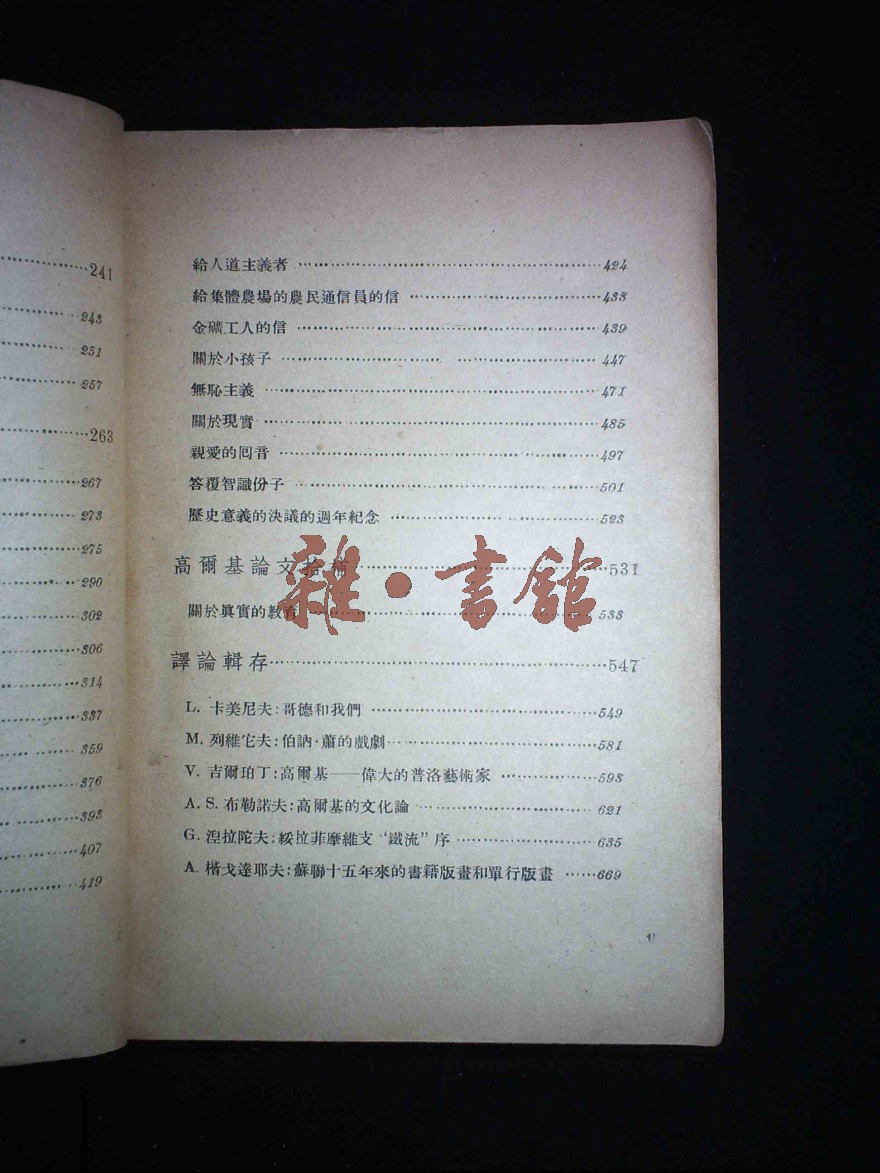 241
243
251
257
263
267
273
275
290
302
306
314
337
359
376
393
407
419
給人道主義者 424
給集體農場的農民通信員的信 433
金礦工人的信 439
關於小孩子 447
無恥主義 471
關於現實 485
親愛的囘音 497
答覆智識份子 501
歷史意義的決議的週年紀念 523
高爾基論文拾補 531
關於眞實的教育 533
譯論輯存 547
L. 卡美尼夫:哥德和我們 549
M. 列維它夫:伯訥·蕭的戲劇 581
V. 吉爾珀丁:高爾基——偉大的普洛藝術家 593
A. S. 布勒諾夫:高爾基的文化論 621
G. 涅拉陀夫:綏拉菲摩維支“鐵流”序 635
A. 楷戈達耶夫:蘇聯十五年來的書籍版畫和單行版畫 669
雜·書館